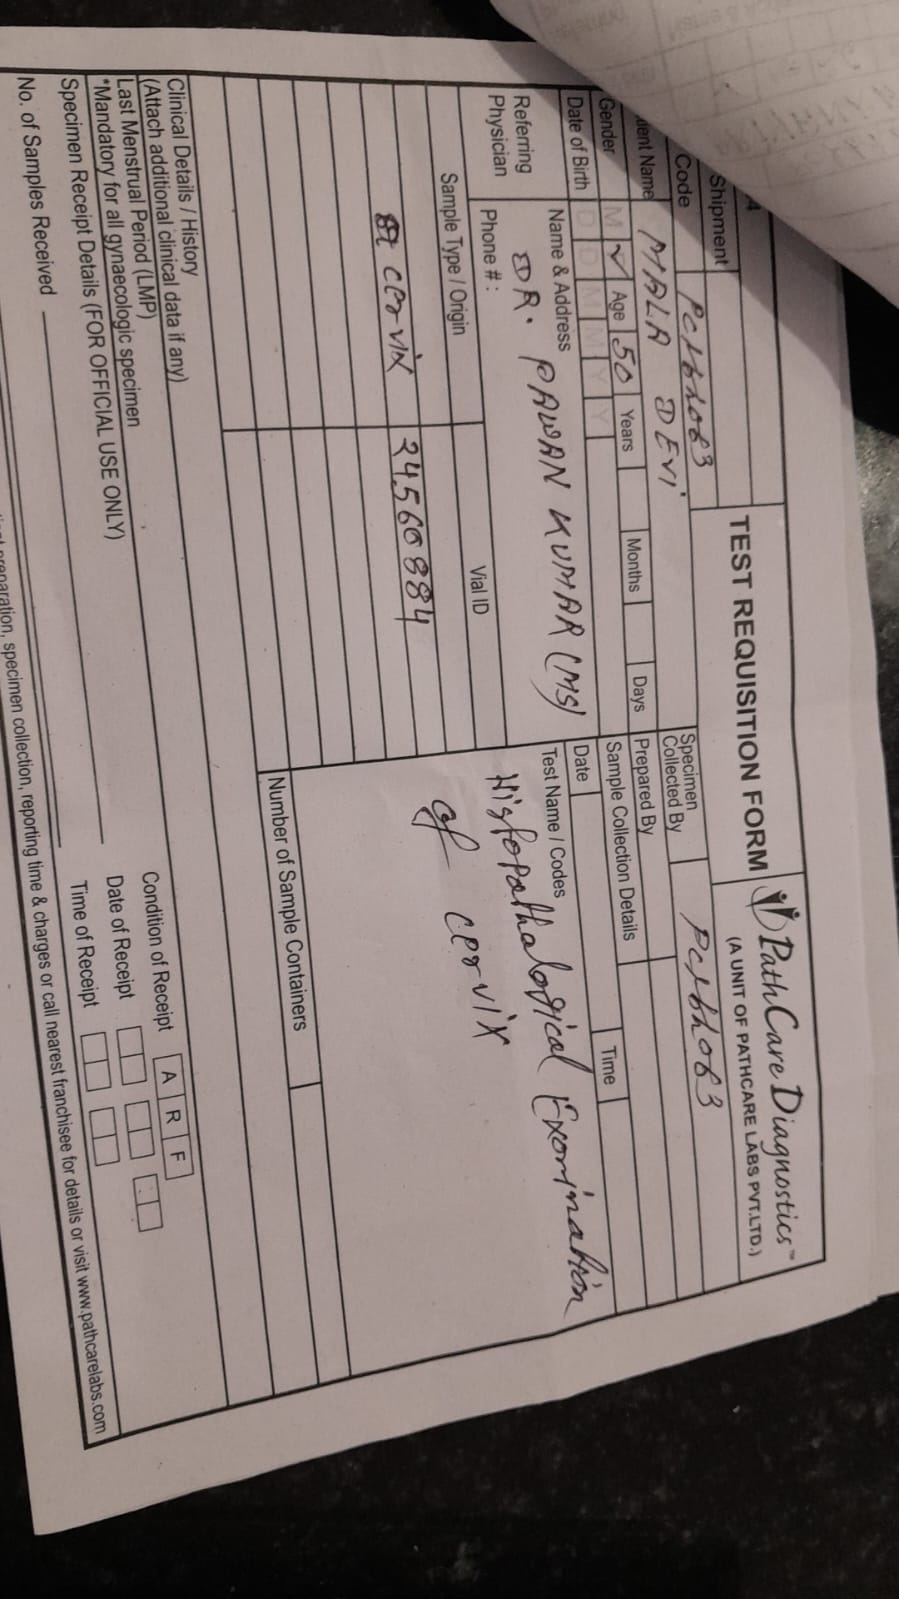 TEST REQUISITION FORM
PathCare Diagnostics™
(A UNIT OF PATHCARE LABS PVT.LTD.)
Shipment
Code
Specimen Collected By
Name MALA DEVI
Prepared By
Gender M ✓ Age 50 Years Months Days
Sample Collection Details
Date of Birth D D M M Y Y
Date Time
Referring Physician
Name & Address
DR. PAWAN KUMAR (MS)
Phone #:
Test Name / Codes
Histopathalogical Examination
of cervix
Sample Type / Origin Vial ID
cervix 24560884
Number of Sample Containers
Clinical Details / History
(Attach additional clinical data if any)
Last Menstrual Period (LMP)
*Mandatory for all gynaecologic specimen
Specimen Receipt Details (FOR OFFICIAL USE ONLY)
No. of Samples Received
Condition of Receipt A R F
Date of Receipt
Time of Receipt
preparation, specimen collection, reporting time & charges or call nearest franchisee for details or visit www.pathcarelabs.com